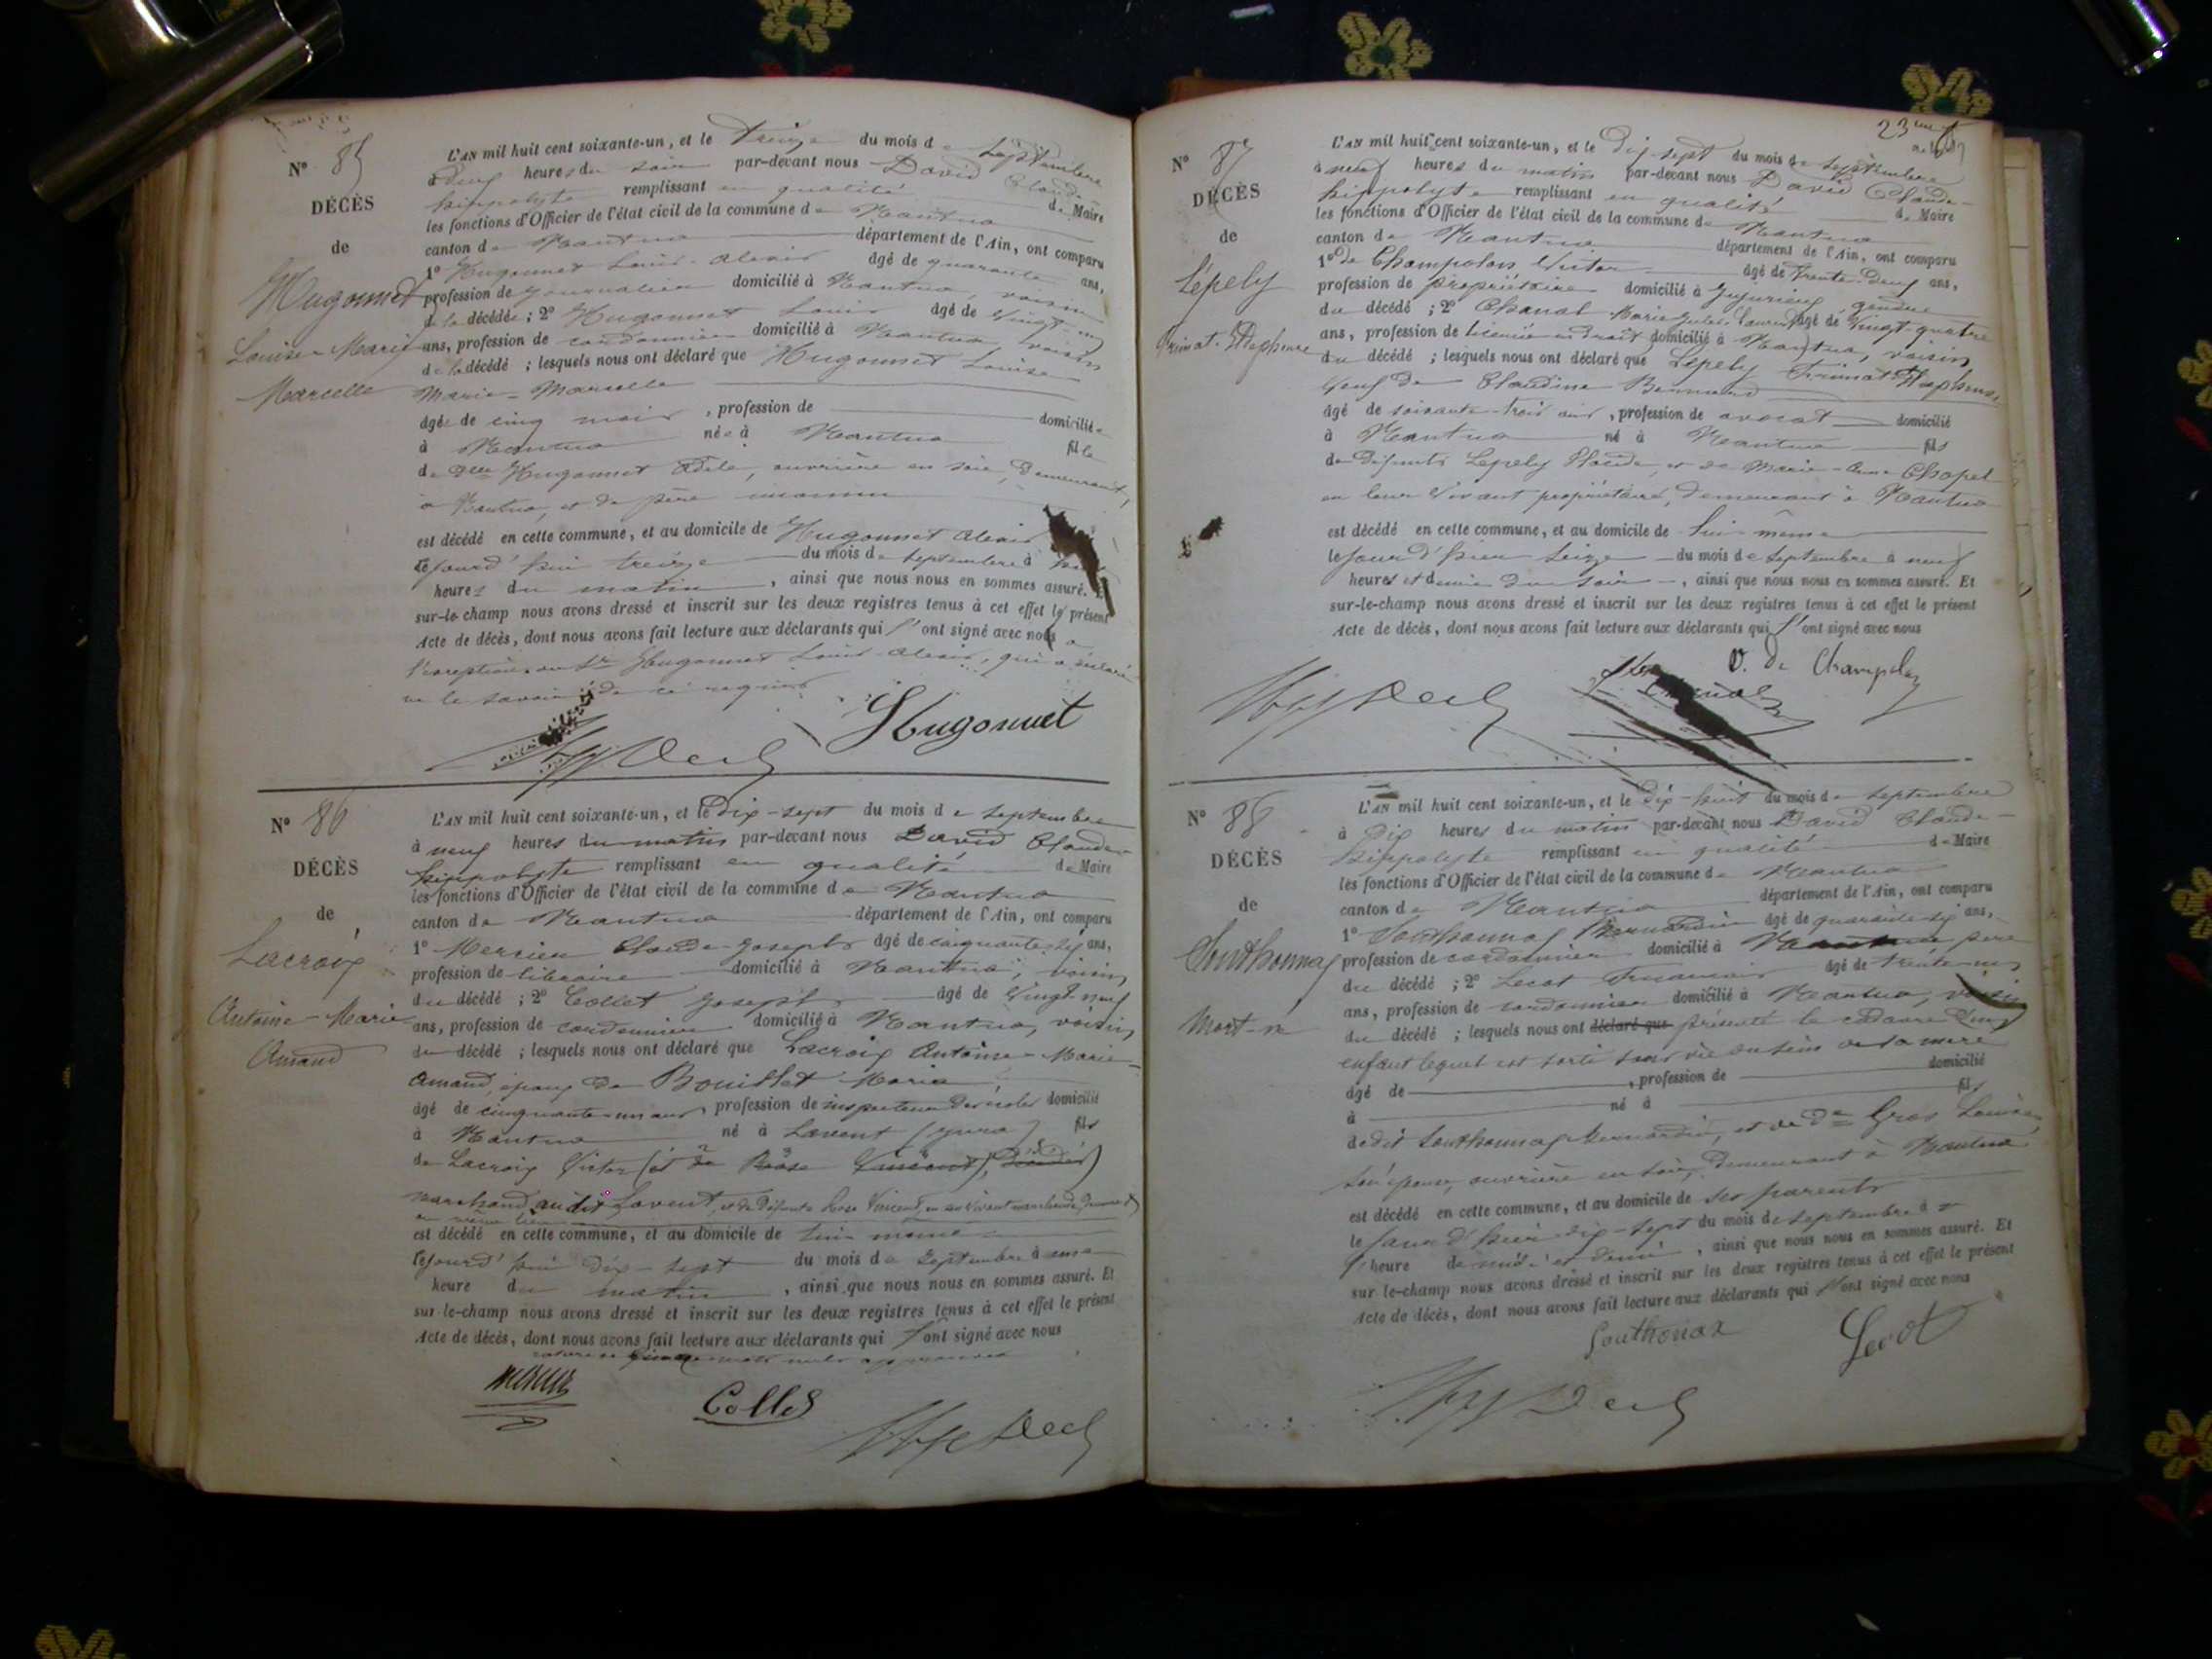 N° 85
DÉCÈS
de
Hugonnet
Louise Marie
Marcelle
L'AN mil huit cent soixante-un, et le treize du mois de septembre
à deux heures du soir par-devant nous David Claude
hippolyte remplissant en qualité de Maire
les fonctions d'Officier de l'état civil de la commune de Nantua
canton de Nantua département de l'Ain, ont comparu
1° Hugonnet Louis-Alexis âgé de quarante ans,
profession de journalier domicilié à Nantua, voisin
de la décédée ; 2° Hugonnet Louis âgé de vingt-un
ans, profession de cordonnier domicilié à Nantua voisin
de la décédé ; lesquels nous ont déclaré que Hugonnet Louise
Marie-Marcelle
âgée de cinq mois, profession de domiciliée
à Nantua née à Nantua fille
de Dlle Hugonnet Adèle, ouvrière en soie, demeurant,
à Nantua, et de père inconnu
est décédé en cette commune, et au domicile de Hugonnet Alexis
le jourd'hui treize du mois de septembre à
heures du matin, ainsi que nous nous en sommes assuré. Et
sur-le-champ nous avons dressé et inscrit sur les deux registres tenus à cet effet le présent
Acte de décès, dont nous avons fait lecture aux déclarants qui l'ont signé avec nous à
l'exception du Sr Hugonnet Louis-Alexis, qui a déclaré
ne le savoir de ce requis
Hugonnet
N° 86
DÉCÈS
de
Lacroix
Antoine-Marie
Amand
L'AN mil huit cent soixante-un, et le dix-sept du mois de septembre
à neuf heures du matin par-devant nous David Claude-
hippolyte remplissant en qualité de Maire
les fonctions d'Officier de l'état civil de la commune de Nantua
canton de Nantua département de l'Ain, ont comparu
1° Mercier Claude-Joseph âgé de cinquante-six ans,
profession de libraire domicilié à Nantua, voisin
du décédé ; 2° Collet Joseph âgé de vingt-neuf
ans, profession de cordonnier domicilié à Nantua, voisin
du décédé ; lesquels nous ont déclaré que Lacroix Antoine-Marie-
Amand, époux de Bouillet Maria
âgé de cinquante-un ans profession de inspecteur des écoles domicilié
à Nantua né à Lavent (Jura) fils
de Lacroix Victor (et de Rose Vincent), décédés)
marchand audit Lavent, et de défunte Rose Vincent, en son vivant marchande, demeurant
au même lieu
est décédé en cette commune, et au domicile de lui-même
le jourd'hui dix-sept du mois de septembre à une
heure du matin, ainsi que nous nous en sommes assuré. Et
sur-le-champ nous avons dressé et inscrit sur les deux registres tenus à cet effet le présent
Acte de décès, dont nous avons fait lecture aux déclarants qui l'ont signé avec nous
mots nuls
Mercier
Collet
23me
N° 87
DÉCÈS
de
Lépely
L'AN mil huit cent soixante-un, et le dix-sept du mois de septembre
à neuf heures du matin par-devant nous David Claude-
hippolyte remplissant en qualité de Maire
les fonctions d'Officier de l'état civil de la commune de Nantua
canton de Nantua département de l'Ain, ont comparu
1° de Champolon Victor âgé de trente-deux ans,
profession de propriétaire domicilié à Jujurieux gendre
du décédé ; 2° Chanal Marie Jules Laurent âgé de vingt-quatre
ans, profession de licencié en droit domicilié à Nantua, voisin
du décédé ; lesquels nous ont déclaré que Lépely
veuf de Claudine Bernard
âgé de soixante-trois ans, profession de avocat domicilié
à Nantua né à Nantua fils
de défunts Lépely Claude, et de Marie-Anne Chapel
en leur vivant propriétaires, demeurant à Nantua
est décédé en cette commune, et au domicile de lui-même
le jour d'hier seize du mois de septembre à neuf
heures et demie du soir, ainsi que nous nous en sommes assuré. Et
sur-le-champ nous avons dressé et inscrit sur les deux registres tenus à cet effet le présent
Acte de décès, dont nous avons fait lecture aux déclarants qui l'ont signé avec nous
V. de Champolon
N° 88
DÉCÈS
de
Southonnax
Mort-né
L'AN mil huit cent soixante-un, et le dix-huit du mois de septembre
à dix heures du matin par-devant nous David Claude-
hippolyte remplissant en qualité de Maire
les fonctions d'Officier de l'état civil de la commune de Nantua
canton de Nantua département de l'Ain, ont comparu
1° Southonnax Bernardin âgé de quarante-six ans,
profession de cordonnier domicilié à Nantua père
du décédé ; 2° Lecot François âgé de trente-neuf
ans, profession de cordonnier domicilié à Nantua, voisin
du décédé ; lesquels nous ont déclaré que présenté le cadavre d'un
enfant lequel est sorti sans vie du sein de sa mère
âgé de , profession de domicilié
à né à fils
de dit Southonnax Bernardin, et de De Gros Louise
son épouse, ouvrière en soie, demeurant à Nantua
est décédé en cette commune, et au domicile de ses parents
le jour d'hier dix-sept du mois de septembre à
l'heure de midi et demi, ainsi que nous nous en sommes assuré. Et
sur-le-champ nous avons dressé et inscrit sur les deux registres tenus à cet effet le présent
Acte de décès, dont nous avons fait lecture aux déclarants qui l'ont signé avec nous
Southonax
Lecot